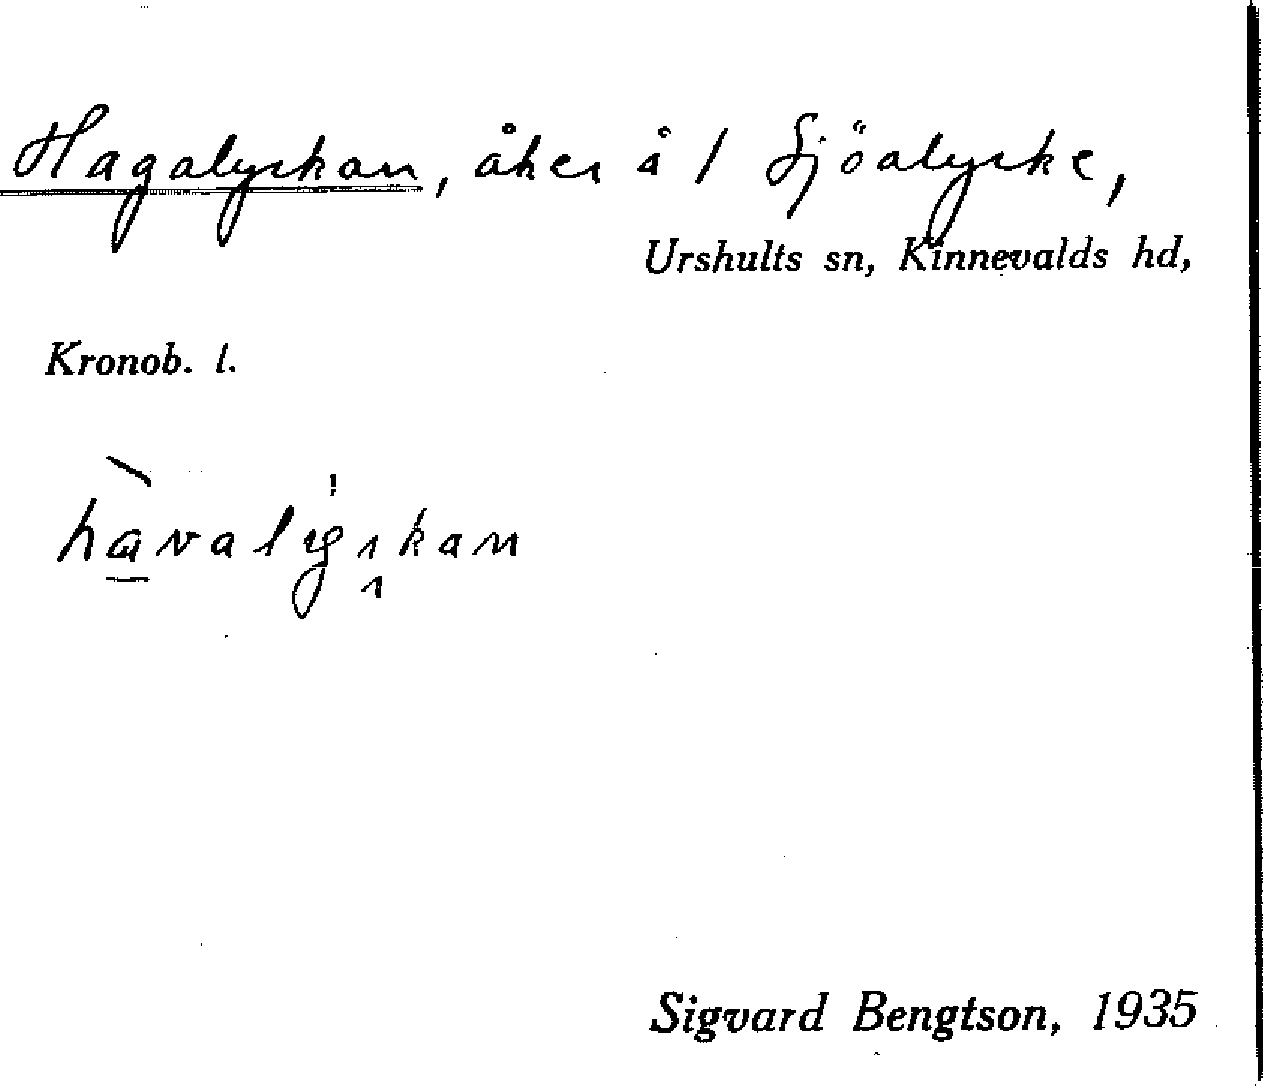 Hagalyckan, åker å 1 Sjöalycke,
Urshults sn, Kinnevalds hd,
Kronob. l.
Sigvard Bengtson, 1935